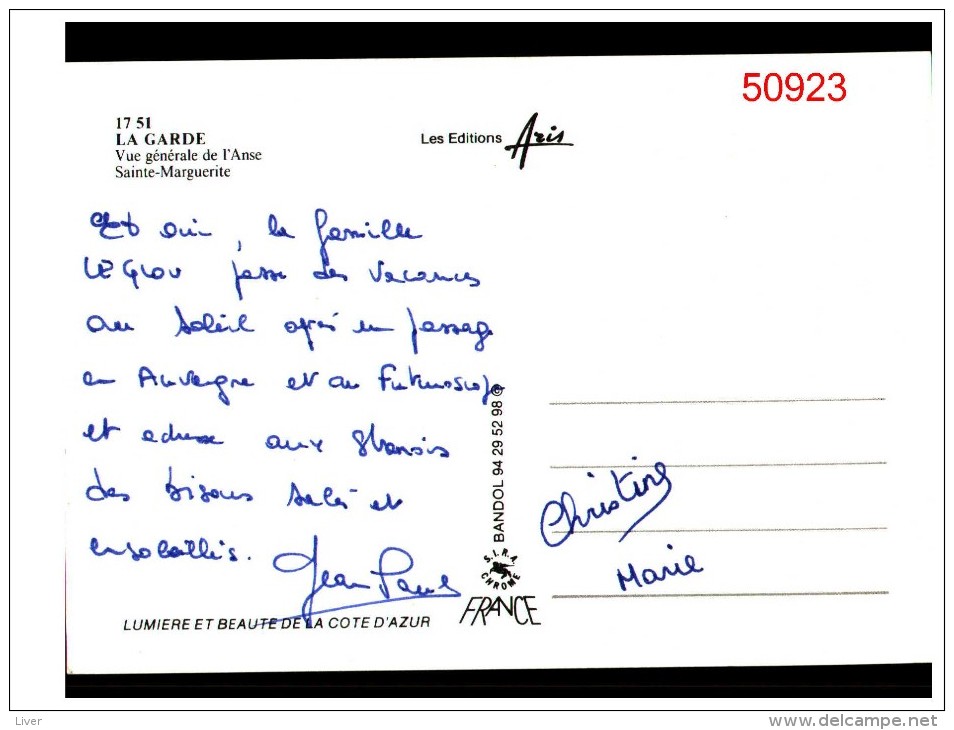 50923
17 51
LA GARDE
Vue générale de l'Anse
Sainte-Marguerite
Les Editions Aris
Et oui, la famille
LE GLOU passe des vacances
au soleil après un passage
en Auvergne et au Futuroscope
et adresse aux
des bisous salés et
ensoleillés.
Jean Paul
Christine
Marie
BANDOL 94 29 52 98 ©
S.I.R.A.
CHROME
FRANCE
LUMIERE ET BEAUTE DE LA COTE D'AZUR
Liver
www.delcampe.net